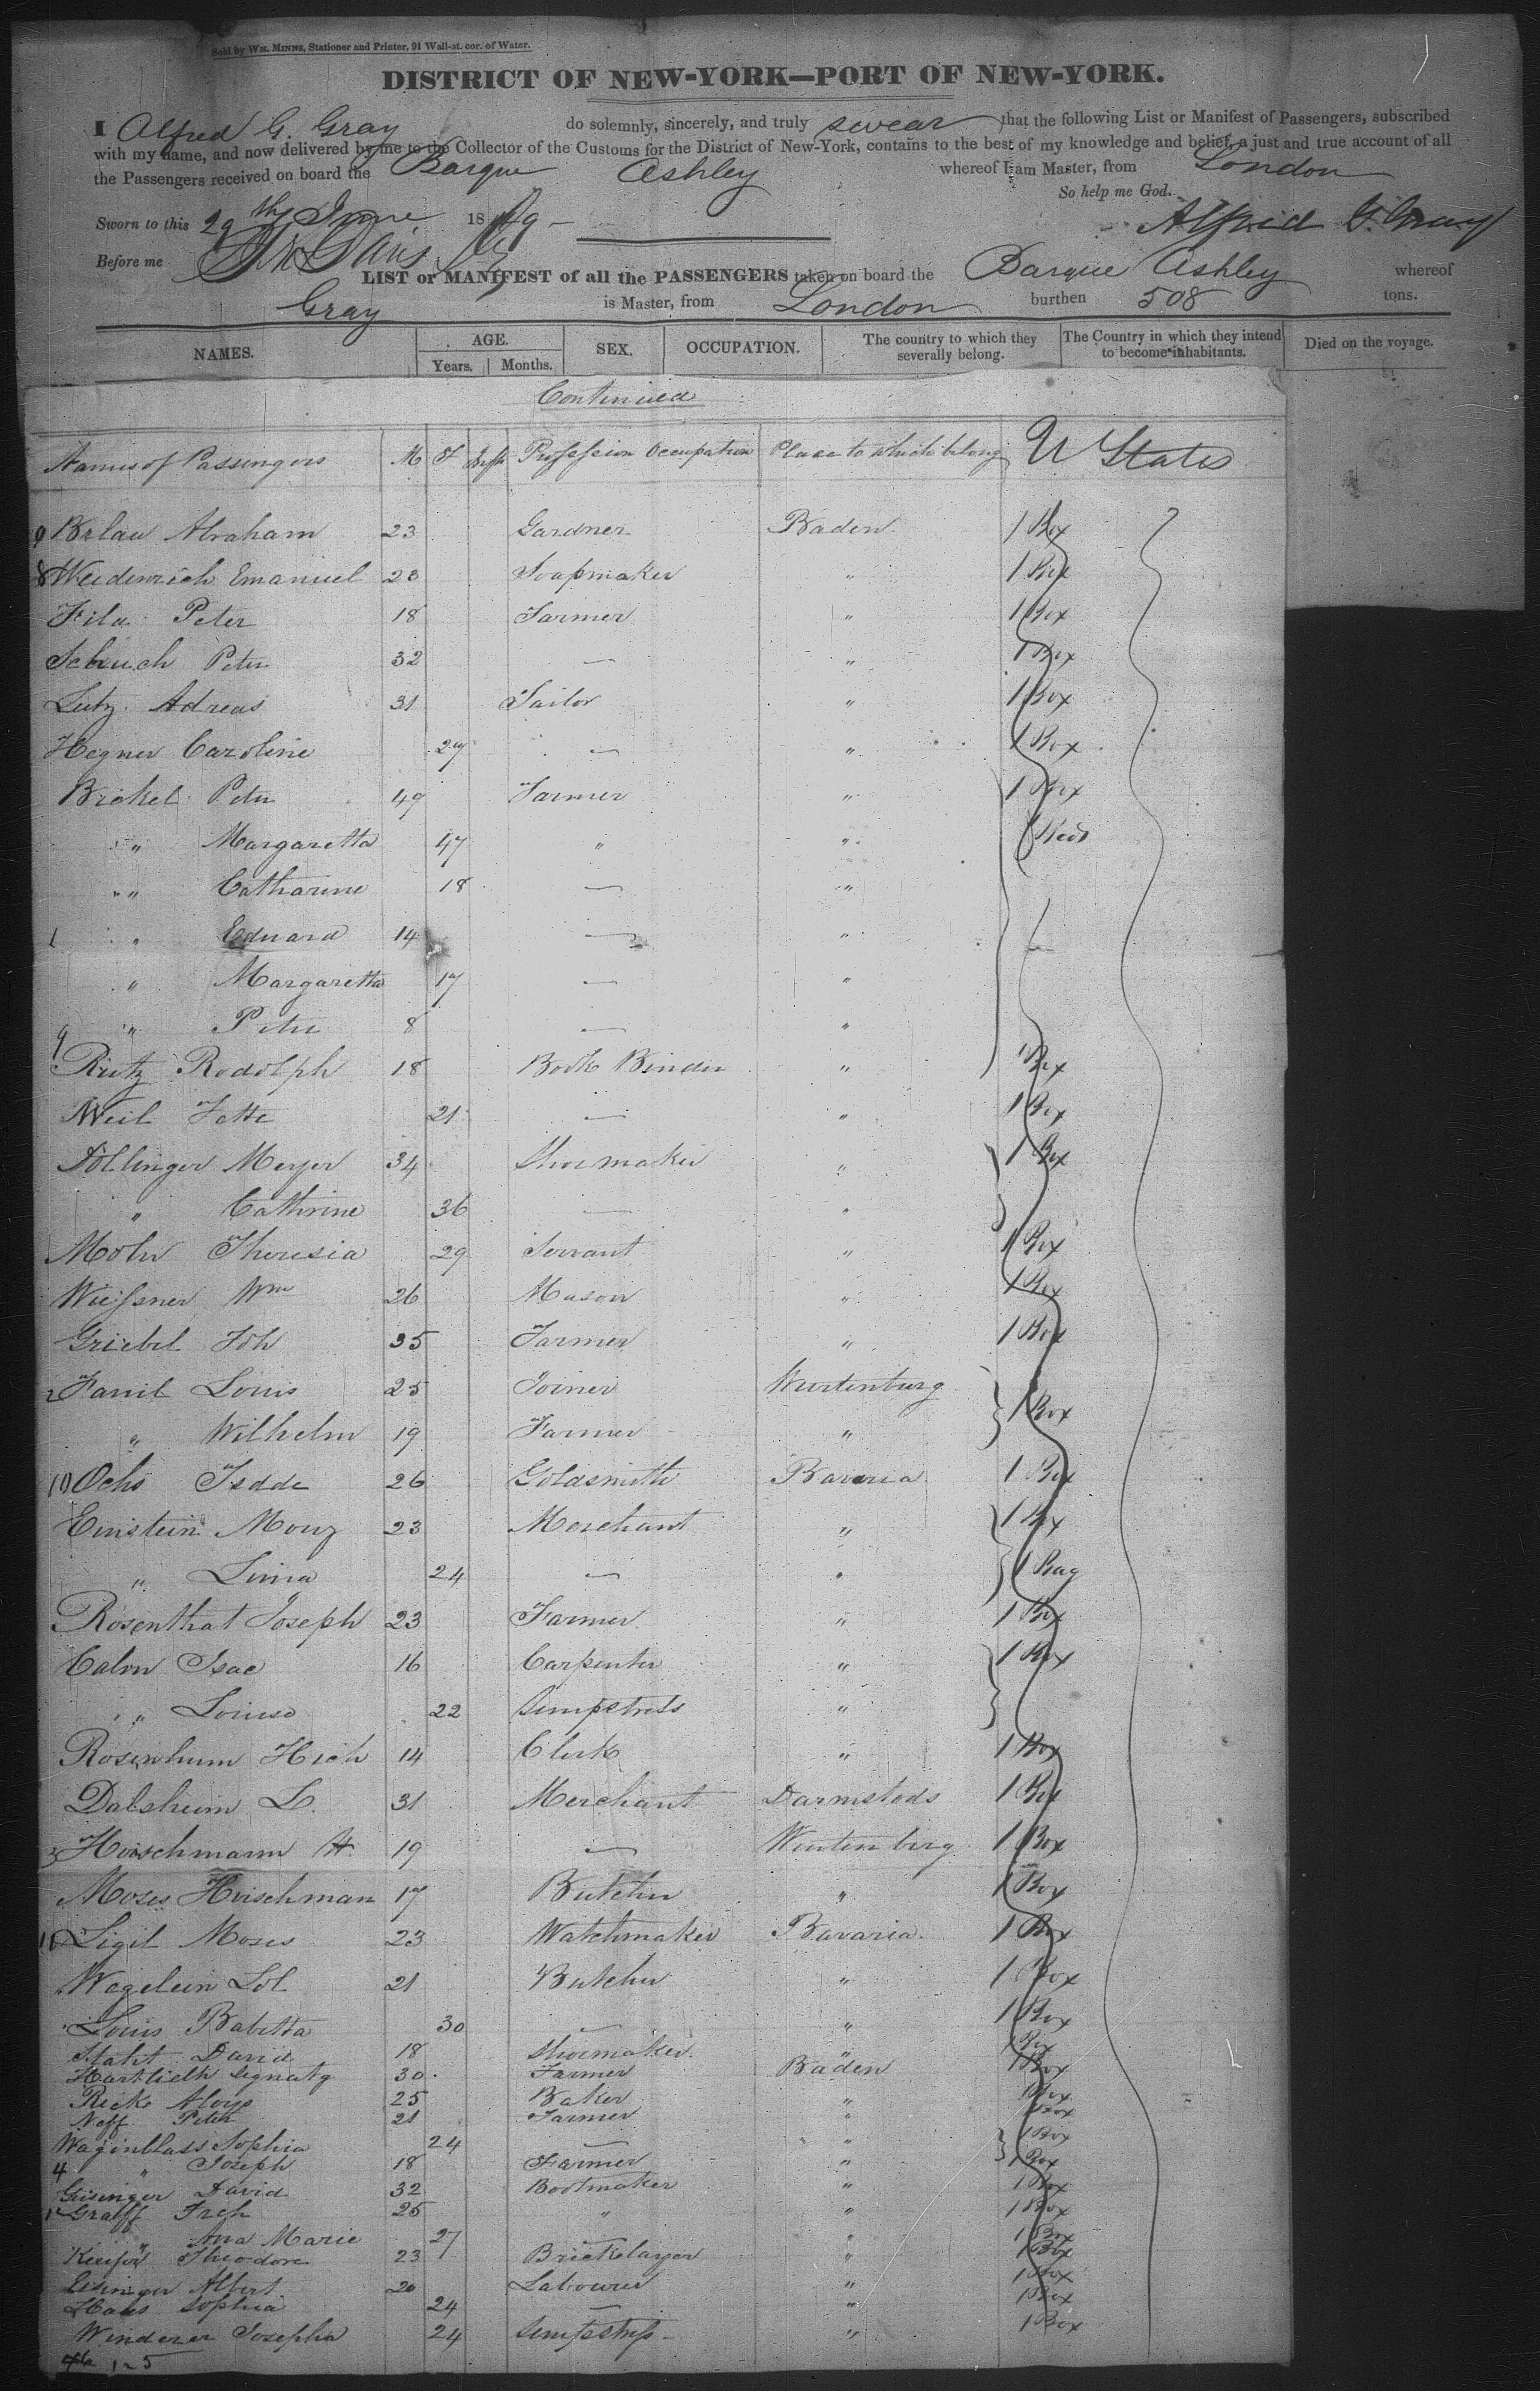 Sold by WM. MINNS, Stationer and Printer, 91 Wall-st. cor. of Water.
DISTRICT OF NEW-YORK—PORT OF NEW-YORK.
I Alfred G. Gray do solemnly, sincerely, and truly swear that the following List or Manifest of Passengers, subscribed
with my name, and now delivered by me to the Collector of the Customs for the District of New-York, contains to the best of my knowledge and belief, a just and true account of all
the Passengers received on board the Barque Ashley whereof I am Master, from London
So help me God.
Sworn to this 29th June 18 Alfred G. Gray
Before me
LIST or MANIFEST of all the PASSENGERS taken on board the Barque Ashley whereof
Gray is Master, from London burthen 508 tons.
NAMES. AGE. Years. Months. SEX. OCCUPATION. The country to which they severally belong. The Country in which they intend to become inhabitants. Died on the voyage.
Continued
Names of Passengers M F Profession Occupation Place to which belong U States
9 Brlau Abraham 23 Gardner Baden 1 Box
8 Weidenrich Emanuel 23 Soapmaker " 1 Box
Fila Peter 18 Farmer " 1 Box
Schuch Peter 32 — " 1 Box
Lutz Adreas 31 Tailor " 1 Box
Hegner Caroline 24 — " 1 Box
Brickel Peter 49 Farmer " 1 Box
" Margaretta 47 " " Beds
" Catharine 18 — "
1 " Eduard 14 — "
" Margaretta 17 — "
" Peter 8 — "
9 Rutz Rodolph 18 Book Binder " 1 Box
Weil Jette 21 — " 1 Box
Dollinger Meyer 34 Shoemaker " 1 Box
" Cathrine 36 — "
Mohr Theresia 29 Servant " 1 Box
Wiessner Wm 26 Mason " 1 Box
Griebel Joh 35 Farmer " 1 Box
2 Fanil Louis 25 Joiner Wurtenburg 1 Box
" Wilhelm 19 Farmer "
10 Ochs Isdde 26 Goldsmith Bavaria 1 Box
Einstein Mouz 23 Merchant " 1 Box
" Linia 24 — " 1 Bag
Rosenthat Joseph 23 Farmer " 1 Box
Calon Isac 16 Carpenter " 1 Box
" Louise 22 Sempstress "
Rosenhum Hich 14 Clerk " 1 Box
Dalsheim L. 31 Merchant Darmstods 1 Box
3 Hoischmann H. 19 — Wurtenberg 1 Box
Moses Hoischman 17 Butcher " 1 Box
11 Ligil Moses 23 Watchmaker Bavaria 1 Box
Wegelein Sol 21 Butcher " 1 Box
Louis Babetta 30 — " 1 Box
Staht David 18 Shoemaker " 1 Box
Hartlieth Ignatz 30 Farmer Baden 1 Box
Rick Aloys 25 Baker " 1 Box
Neff Peter 21 Farmer " 1 Box
Wagenblass Sophia 24 — " 1 Box
4 " Joseph 18 Farmer " 1 Box
Geisinger David 32 Bootmaker " 1 Box
12 Graff Frch 25 " " 1 Box
" Ana Marie 27 — " 1 Box
Theodore 23 Bricklayer " 1 Box
Eisinger Albert 20 Labourer " 1 Box
Haas Sophia 24 — " 1 Box
Winderer Josepha 24 Sempstress " 1 Box
125